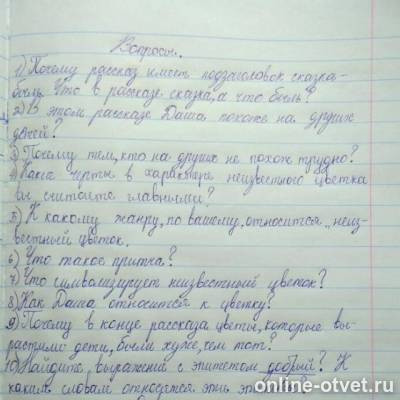 Вопросы.
1) Почему рассказ имеет подзаголовок сказка-
быль. Что в рассказе сказка, а что быль?
2) В этом рассказе Даша похоже на других
детей?
3) Почему тем, кто на других не похож трудно?
4) Какие черты в характере неизвестного цветка
вы считаете главными?
5) К какому жанру, по вашему, относится „неиз-
вестный цветок.
6) Что такое притча?
7) Что символизирует неизвестный цветок?
8) Как Даша относится к цветку?
9) Почему в конце рассказа цветы, которые вы-
растили дети, были хуже, чем тот?
10) Найдите выражение с эпитетом добрый? К
каким словам относятся эти
online-otvet.ru